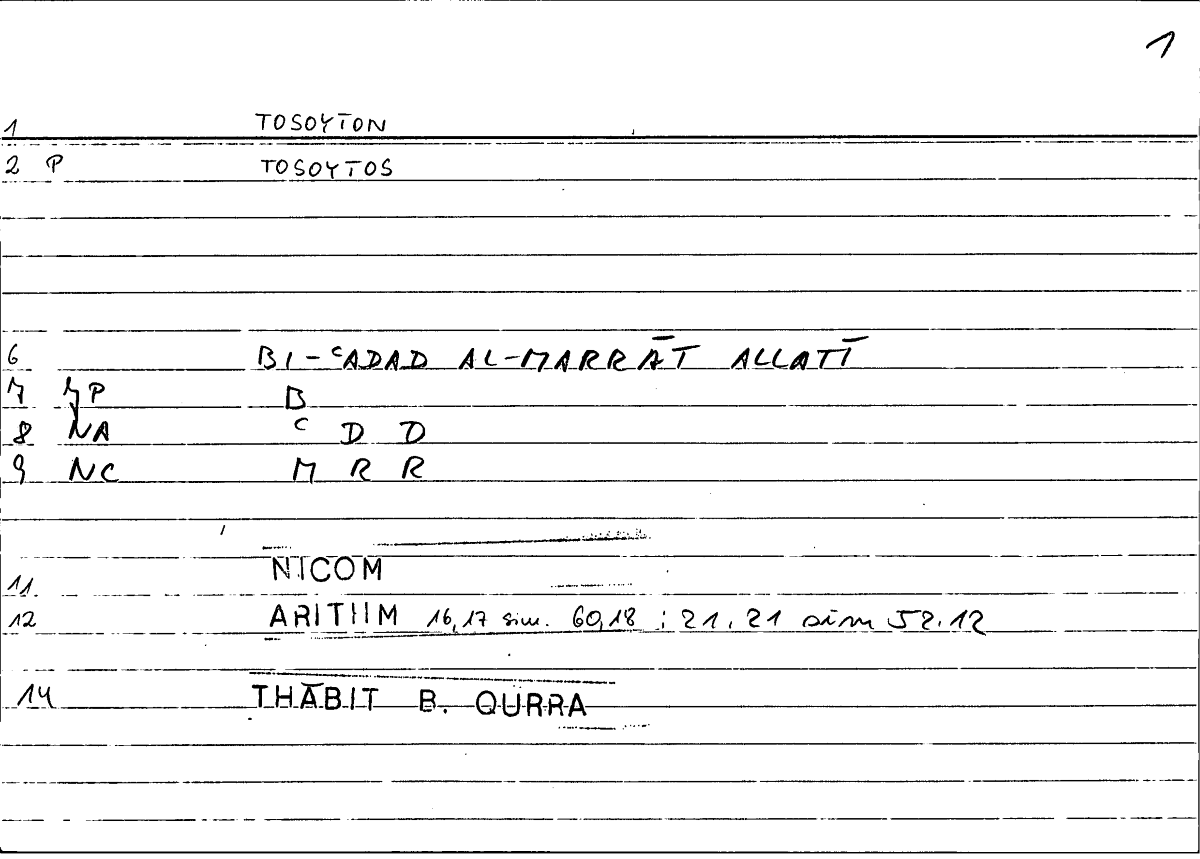 1
1 TOSOYTON
2 P TOSOYTOS
6 BI-ᶜADAD AL-MARRĀT ALLATĪ
7 P B
8 NA ᶜ D D
9 NC M R R
11. NICOM
12 ARITIIM 16,17 sim. 60,18 ; 21.21 sim 52.12
14 THĀBIT B. QURRA